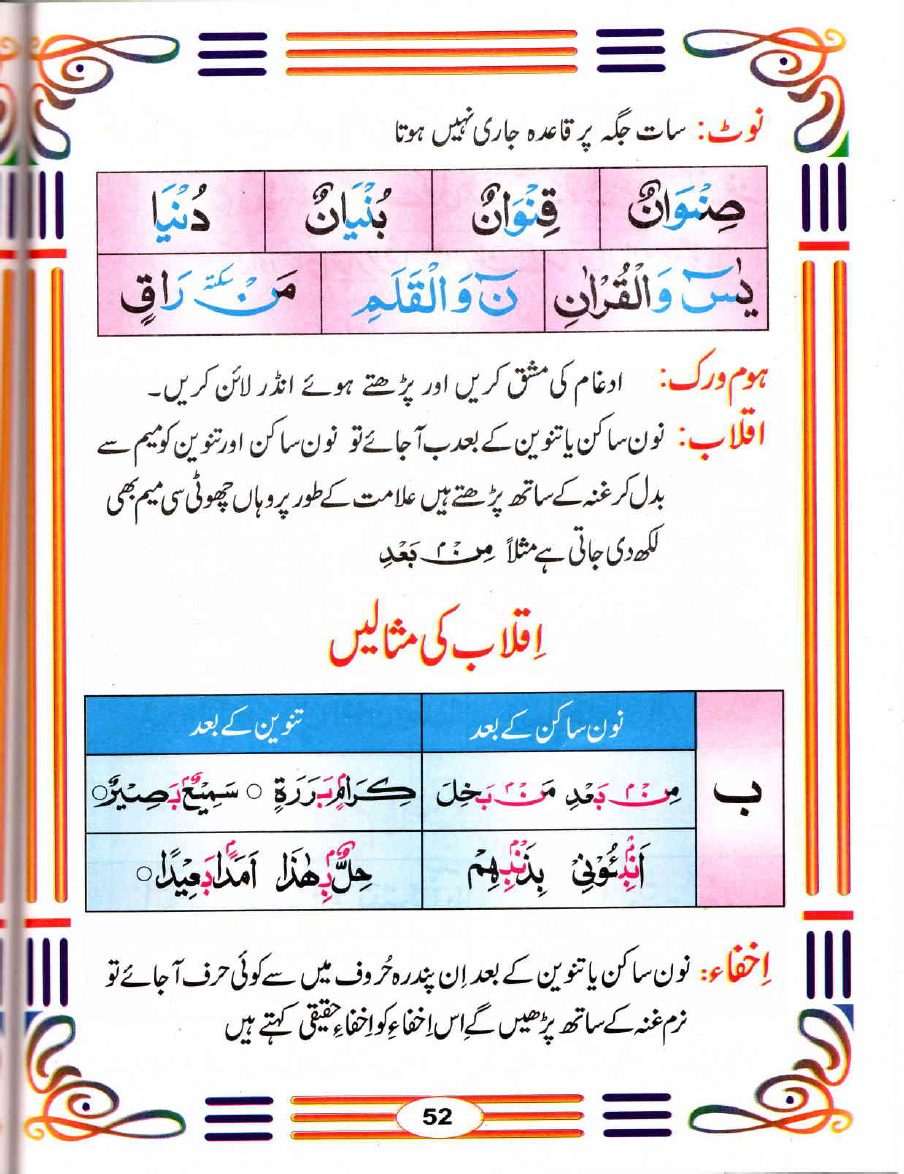 نوٹ: سات جگہ پر قاعدہ جاری نہیں ہوتا
صِنْوَانٌ قِنْوَانٌ بُنْيَانٌ دُنْيَا
يٰسٓ وَالْقُرْاٰنِ نٓ وَالْقَلَمِ مَنْ سكتة رَاقٍ
ہوم ورک: ادغام کی مشق کریں اور پڑھتے ہوئے انڈر لائن کریں۔
اقلاب: نون ساکن یا تنوین کے بعد ب آجائے تو نون ساکن اور تنوین کو میم سے
بدل کر غنہ کے ساتھ پڑھتے ہیں علامت کے طور پر وہاں چھوٹی سی میم بھی
لکھ دی جاتی ہے مثلاً مِنْۢ بَعْدِ
اِقلاب کی مثالیں
نون ساکن کے بعد تنوین کے بعد
ب
مِنْۢ بَعْدِ مَنْۢ بَخِلَ كِرَامٍۭ بَرَرَةٍ ○ سَمِيْعٌۢ بَصِيْرٌ ○
اَنْۢبِـُٔوْنِيْ بِذَنْۢبِهِمْ حِلٌّۢ بِهٰذَا اَمَدًۢا بَعِيْدًا ○
اِخفاء: نون ساکن یا تنوین کے بعد اِن پندرہ حُروف میں سے کوئی حرف آجائے تو
نرم غنہ کے ساتھ پڑھیں گے اس اِخفاء کو اِخفاءِ حقیقی کہتے ہیں
52